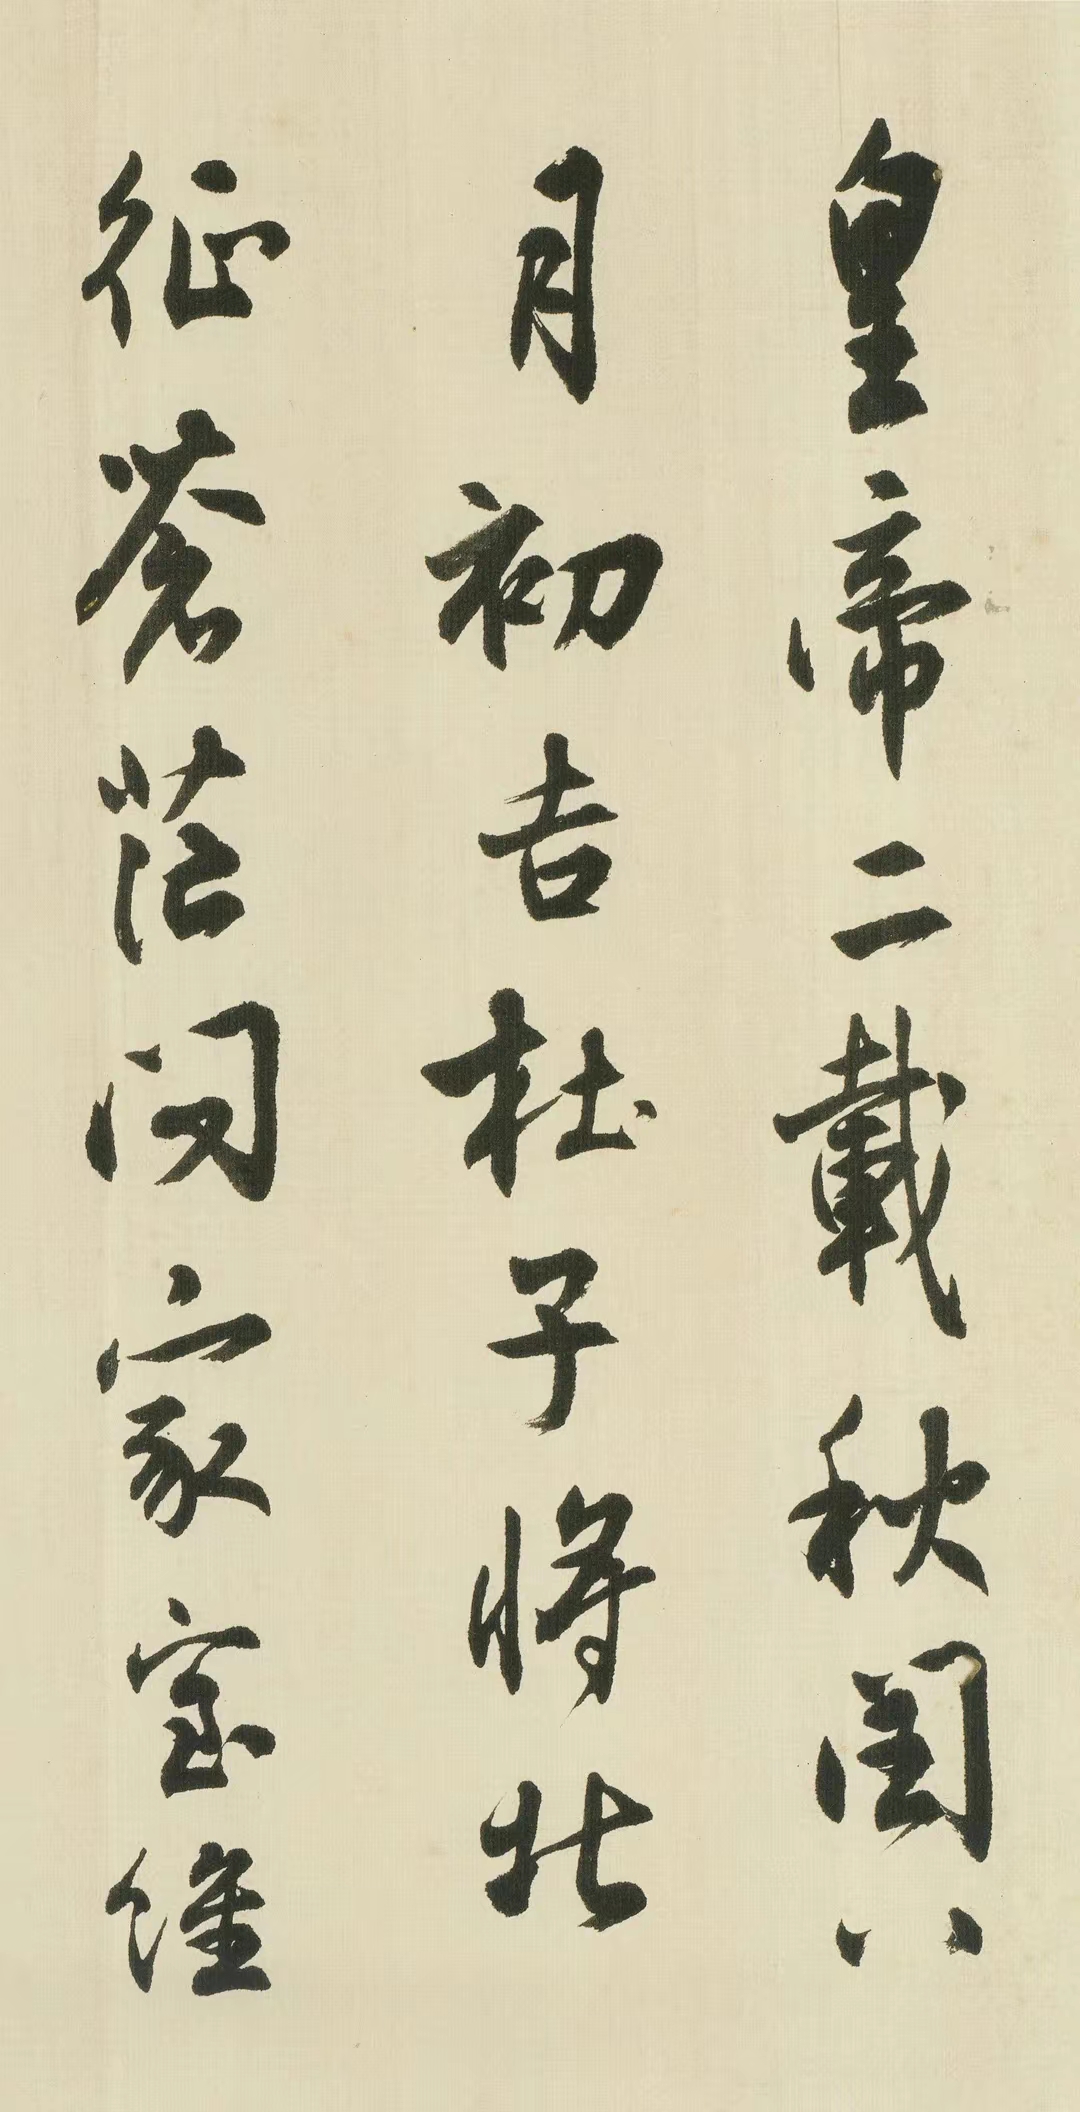 皇帝二載秋閏八
月初吉杜子將北
征蒼茫問家室維